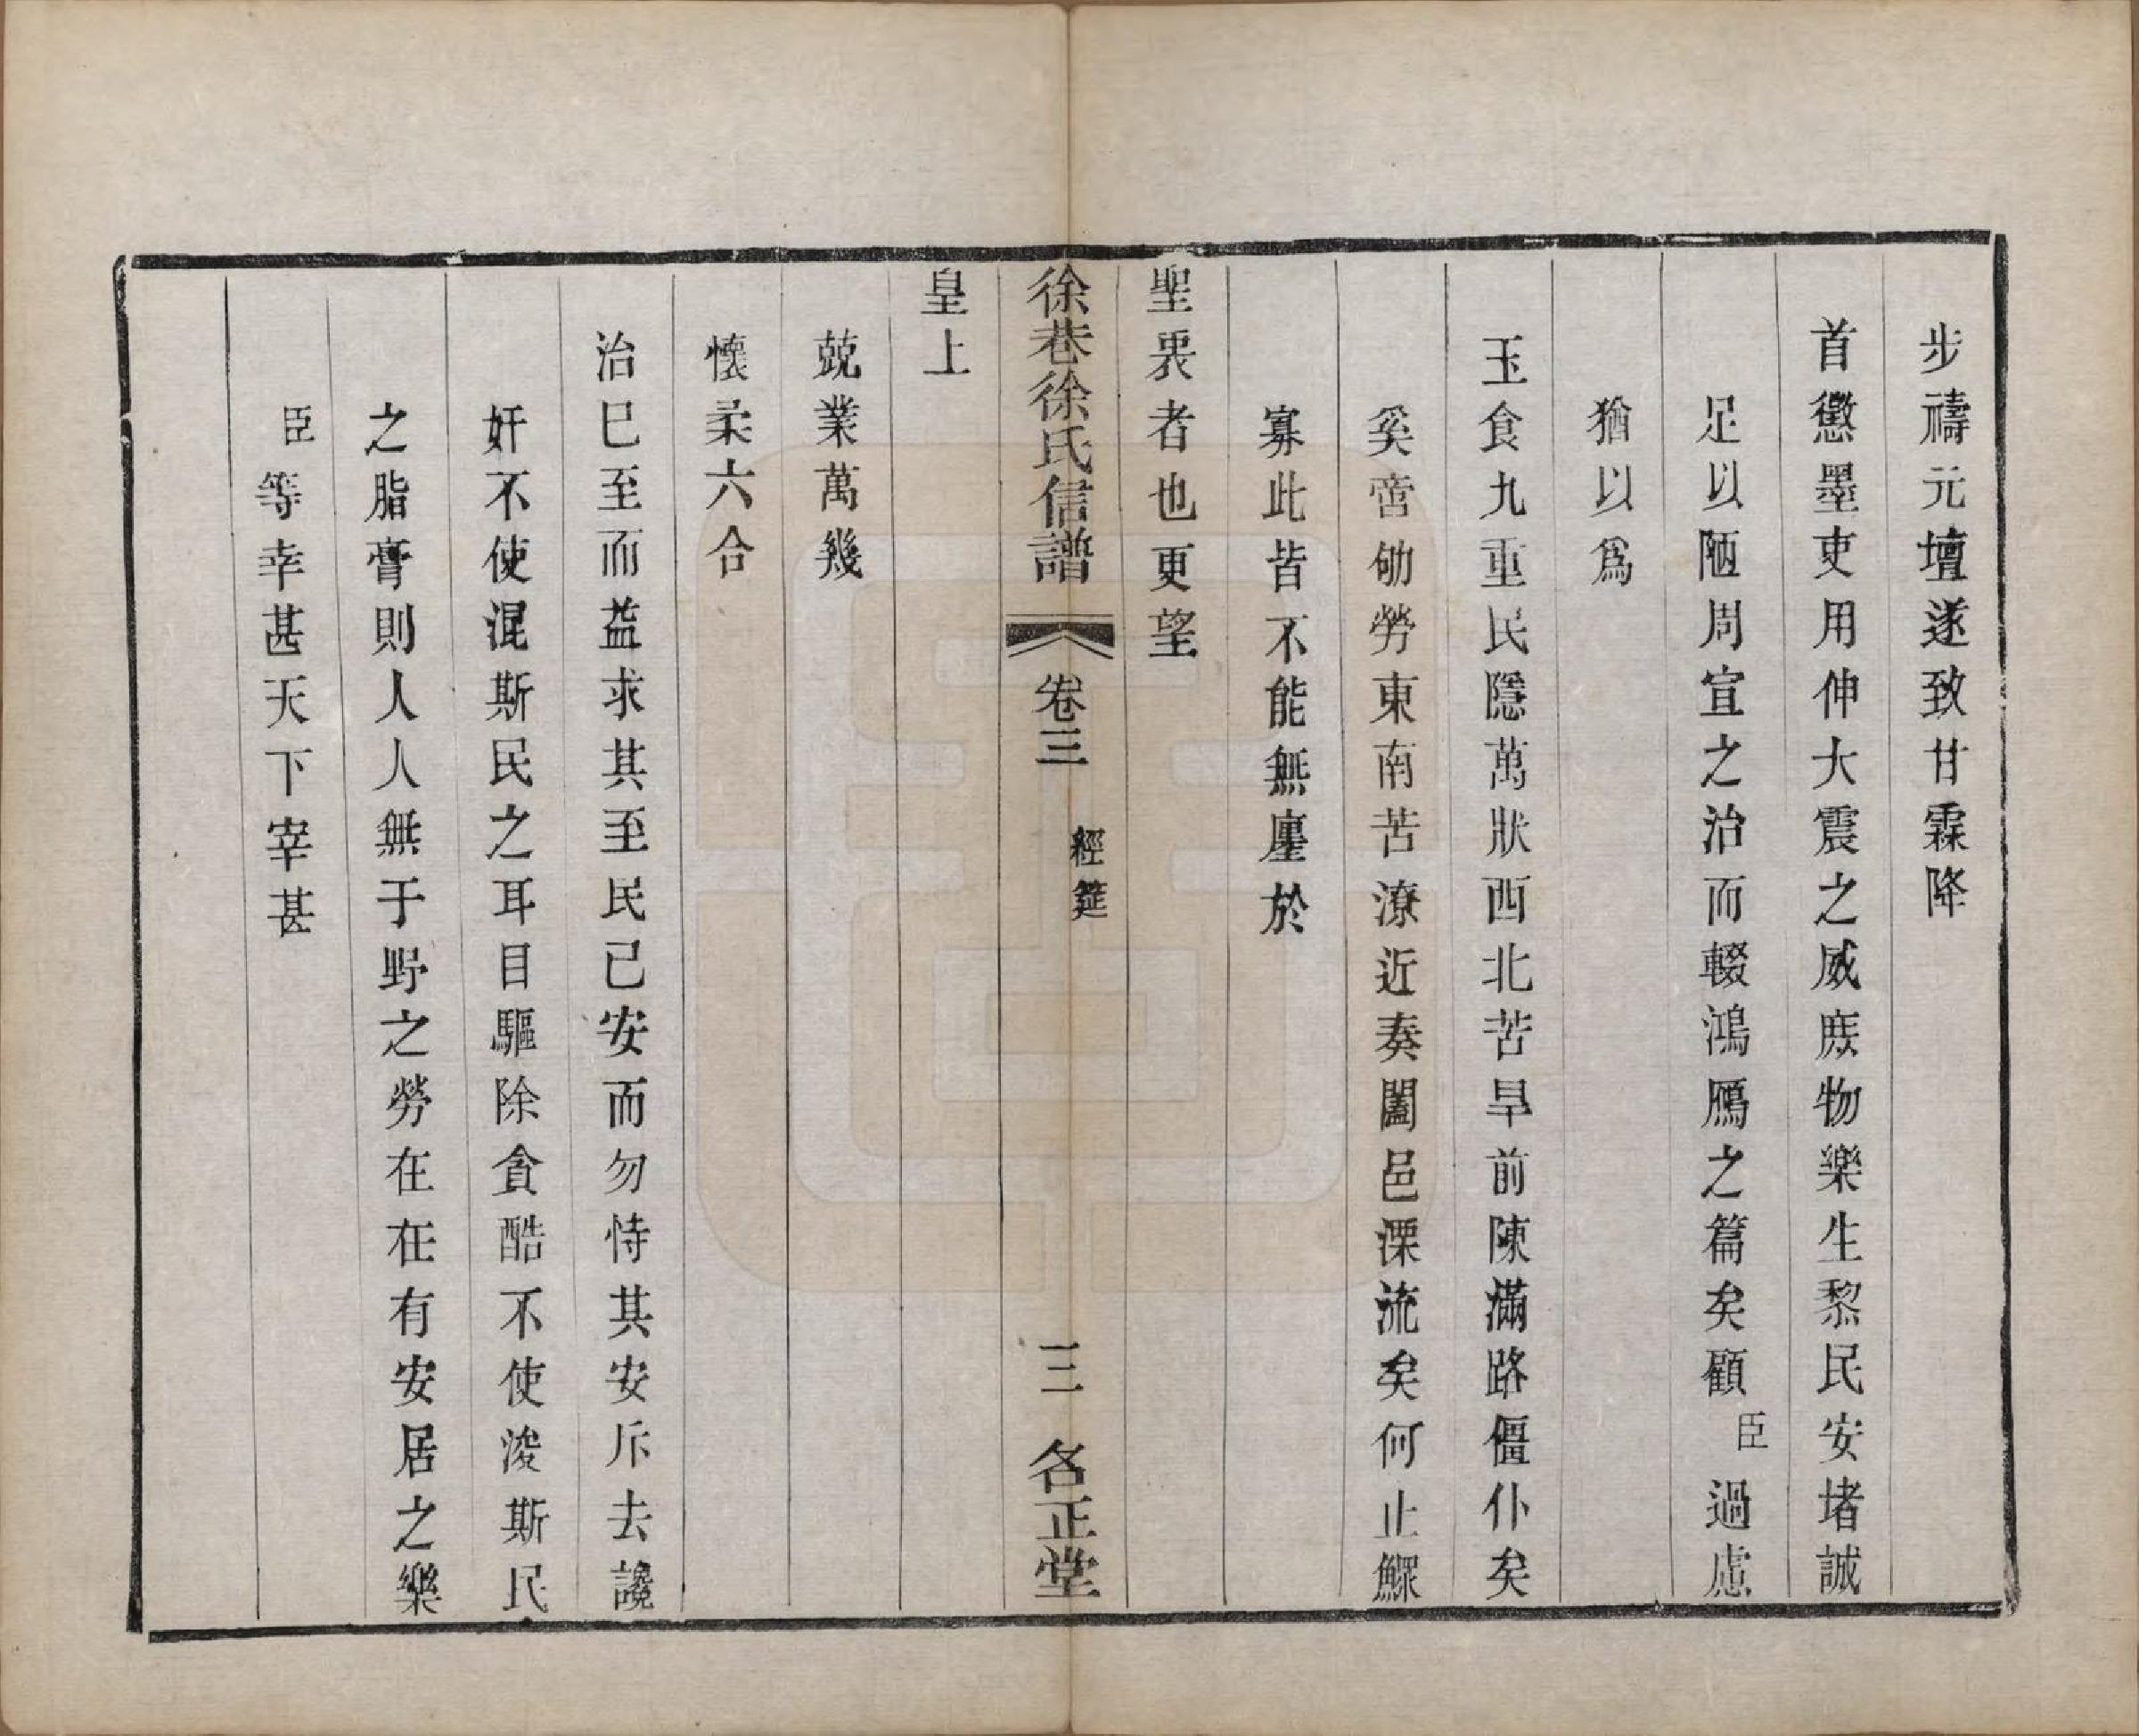 步禱元壇遂致甘霖降
首懲墨吏用伸大震之威庶物樂生黎民安堵誠
足以陋周宣之治而輟鴻鴈之篇矣顧臣過慮
猶以爲
玉食九重民隱萬狀西北苦旱前陳滿路僵仆矣
奚啻劬勞東南苦潦近奏闔邑漂流矣何止鰥
寡此皆不能無廑於
聖衷者也更望
徐巷徐氏信譜
卷三
經筵
三
名正堂
皇上
兢業萬幾
懷柔六合
治已至而益求其至民已安而勿恃其安斥去讒
奸不使混斯民之耳目驅除貪酷不使浚斯民
之脂膏則人人無于野之勞在在有安居之樂
臣等幸甚天下宰甚